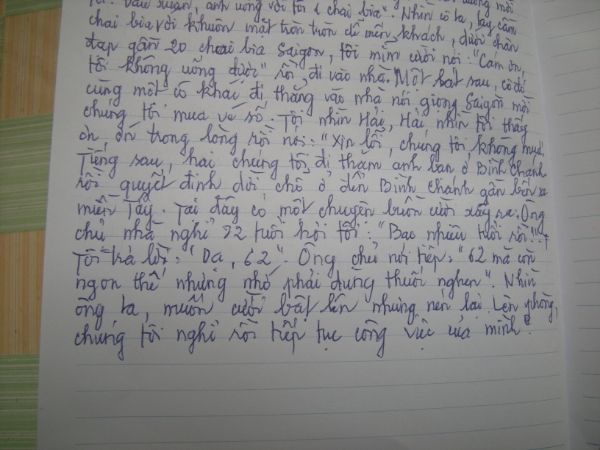 tôi: "Đầu xuân, anh uống với tôi 1 chai bia". Nhìn cô ta, tay cầm
chai bia với khuôn mặt tròn tròn dễ mến khách, dưới chân
đạp gần 20 chai bia Saigon, tôi mỉm cười nói: "Cám ơn,
tôi không uống được" rồi, đi vào nhà. Một lát sau, cô đó
cùng một cô khác đi thẳng vào nhà nói giọng Saigon mời
chúng tôi mua vé số. Tôi nhìn Hải, Hải nhìn tôi thấy
ơn ớn trong lòng rồi nói: "Xin lỗi, chúng tôi không mua.
Tiếng sau, hai chúng tôi, đi thăm anh bạn ở Bình chánh
rồi quyết định dời chỗ ở đến Bình chánh gần bến xe
miền Tây. Tại đây có một chuyện buồn cười xảy ra. Ông
chủ nhà nghỉ 82 tuổi hỏi tôi: "Bao nhiêu tuổi rồi..?
Tôi trả lời: "Dạ, 62". Ông chủ nói tiếp: "62 mà còn
ngon thế nhưng nhớ phải dùng thuốc nghen". Nhìn
ông ta, muốn cười bật lên nhưng nén lại. Lên phòng,
chúng tôi nghỉ rồi tiếp tục công việc của mình.